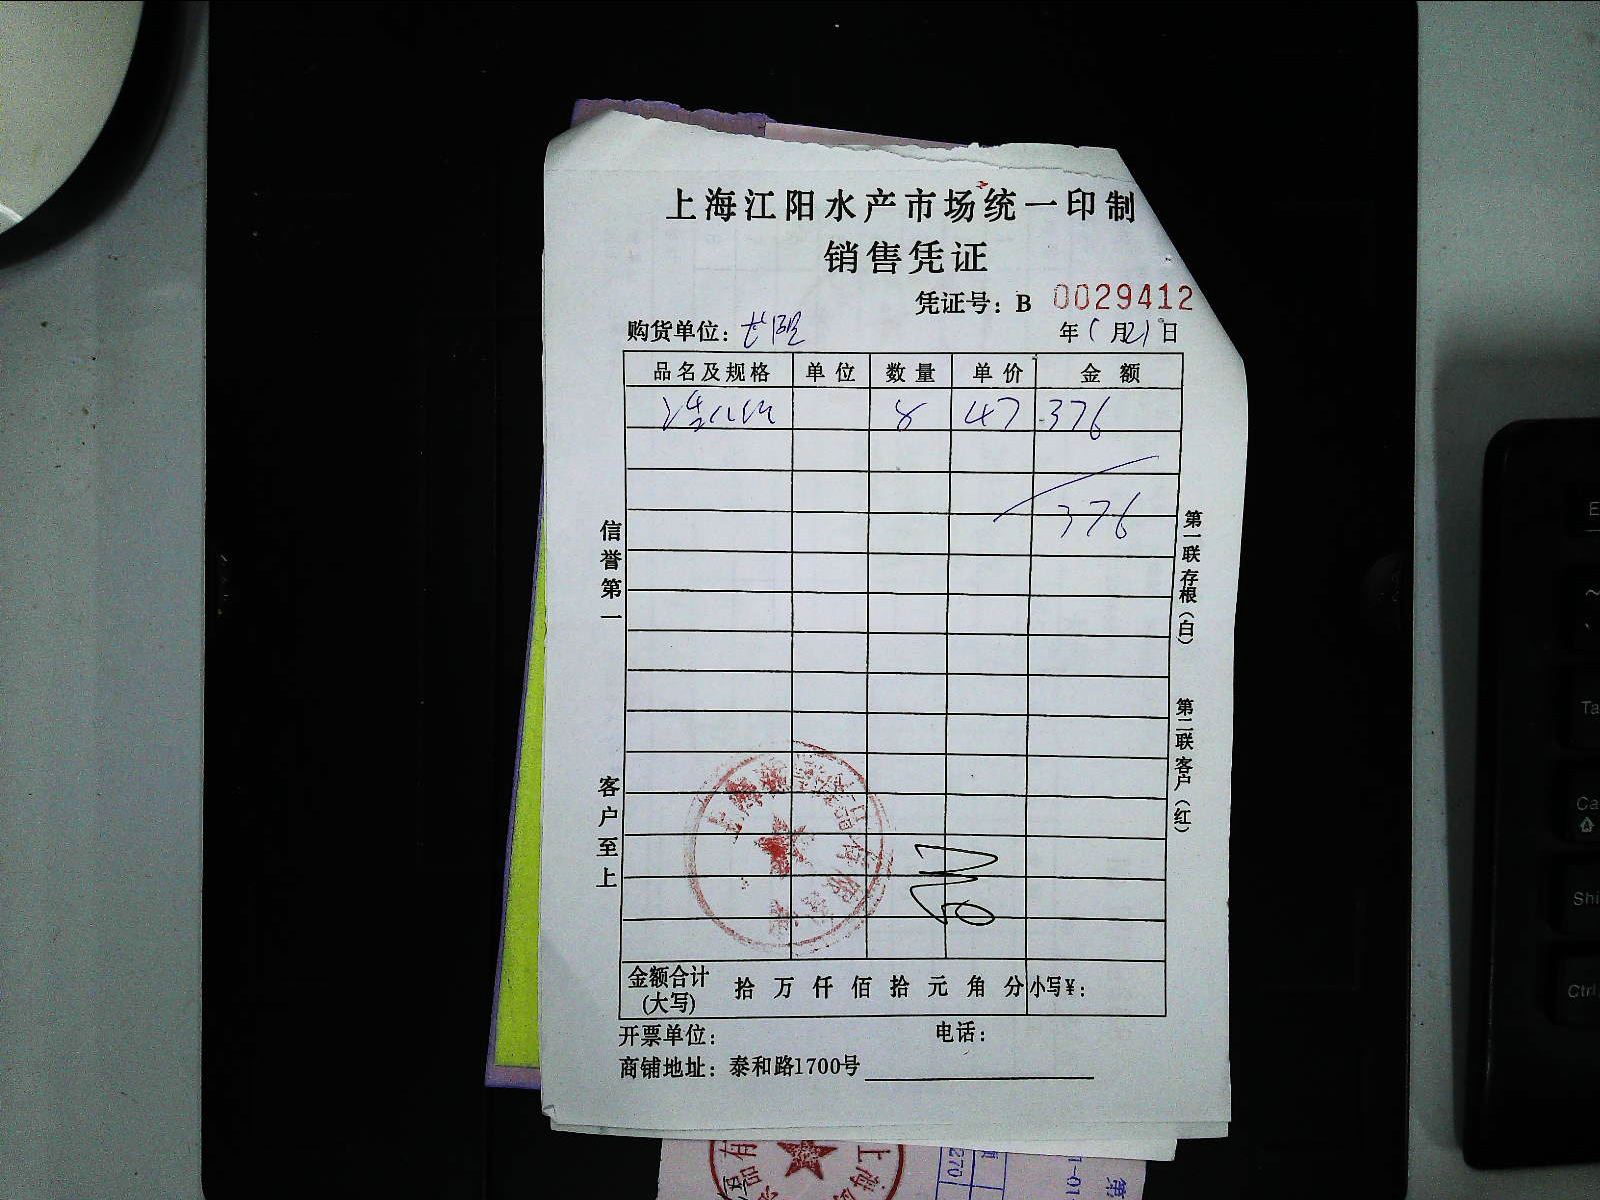 上海江阳水产市场统一印制
销售凭证
凭证号：B 0029412
购货单位： 年 1 月 21 日
品名及规格 单位 数量 单价 金额
8 47 376
376
信誉第一
客户至上
第一联 存根（白）
第二联 客户（红）
金额合计（大写） 拾 万 仟 佰 拾 元 角 分 小写¥：
开票单位： 电话：
商铺地址：泰和路1700号